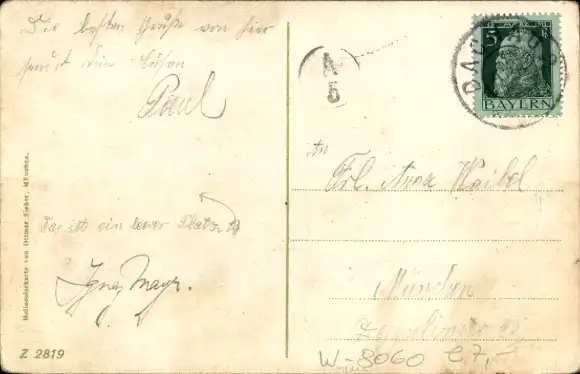 Die besten Grüße von hier
Paul
Das ist ein leerer Platz
Ignaz Mayr.
Heliocolorkarte von Ottmar Zieher, München.
Z 2819
A
5
5
BAYERN
DAC
An
Frl. Anna Waibel
München
W-8060 e7,-